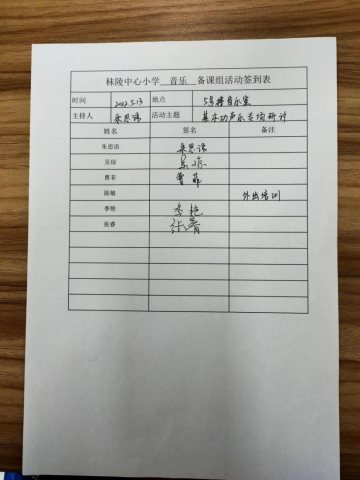 秣陵中心小学 音乐 备课组活动签到表
时间 2022.5.13 地点 5号楼音乐室
主持人 朱思语 活动主题 基本功声乐专项研讨
姓名 签名 备注
朱思语 朱思语
吴琼 吴琼
曹菲 曹菲
陈敏 外出培训
季艳 季艳
张睿 张睿